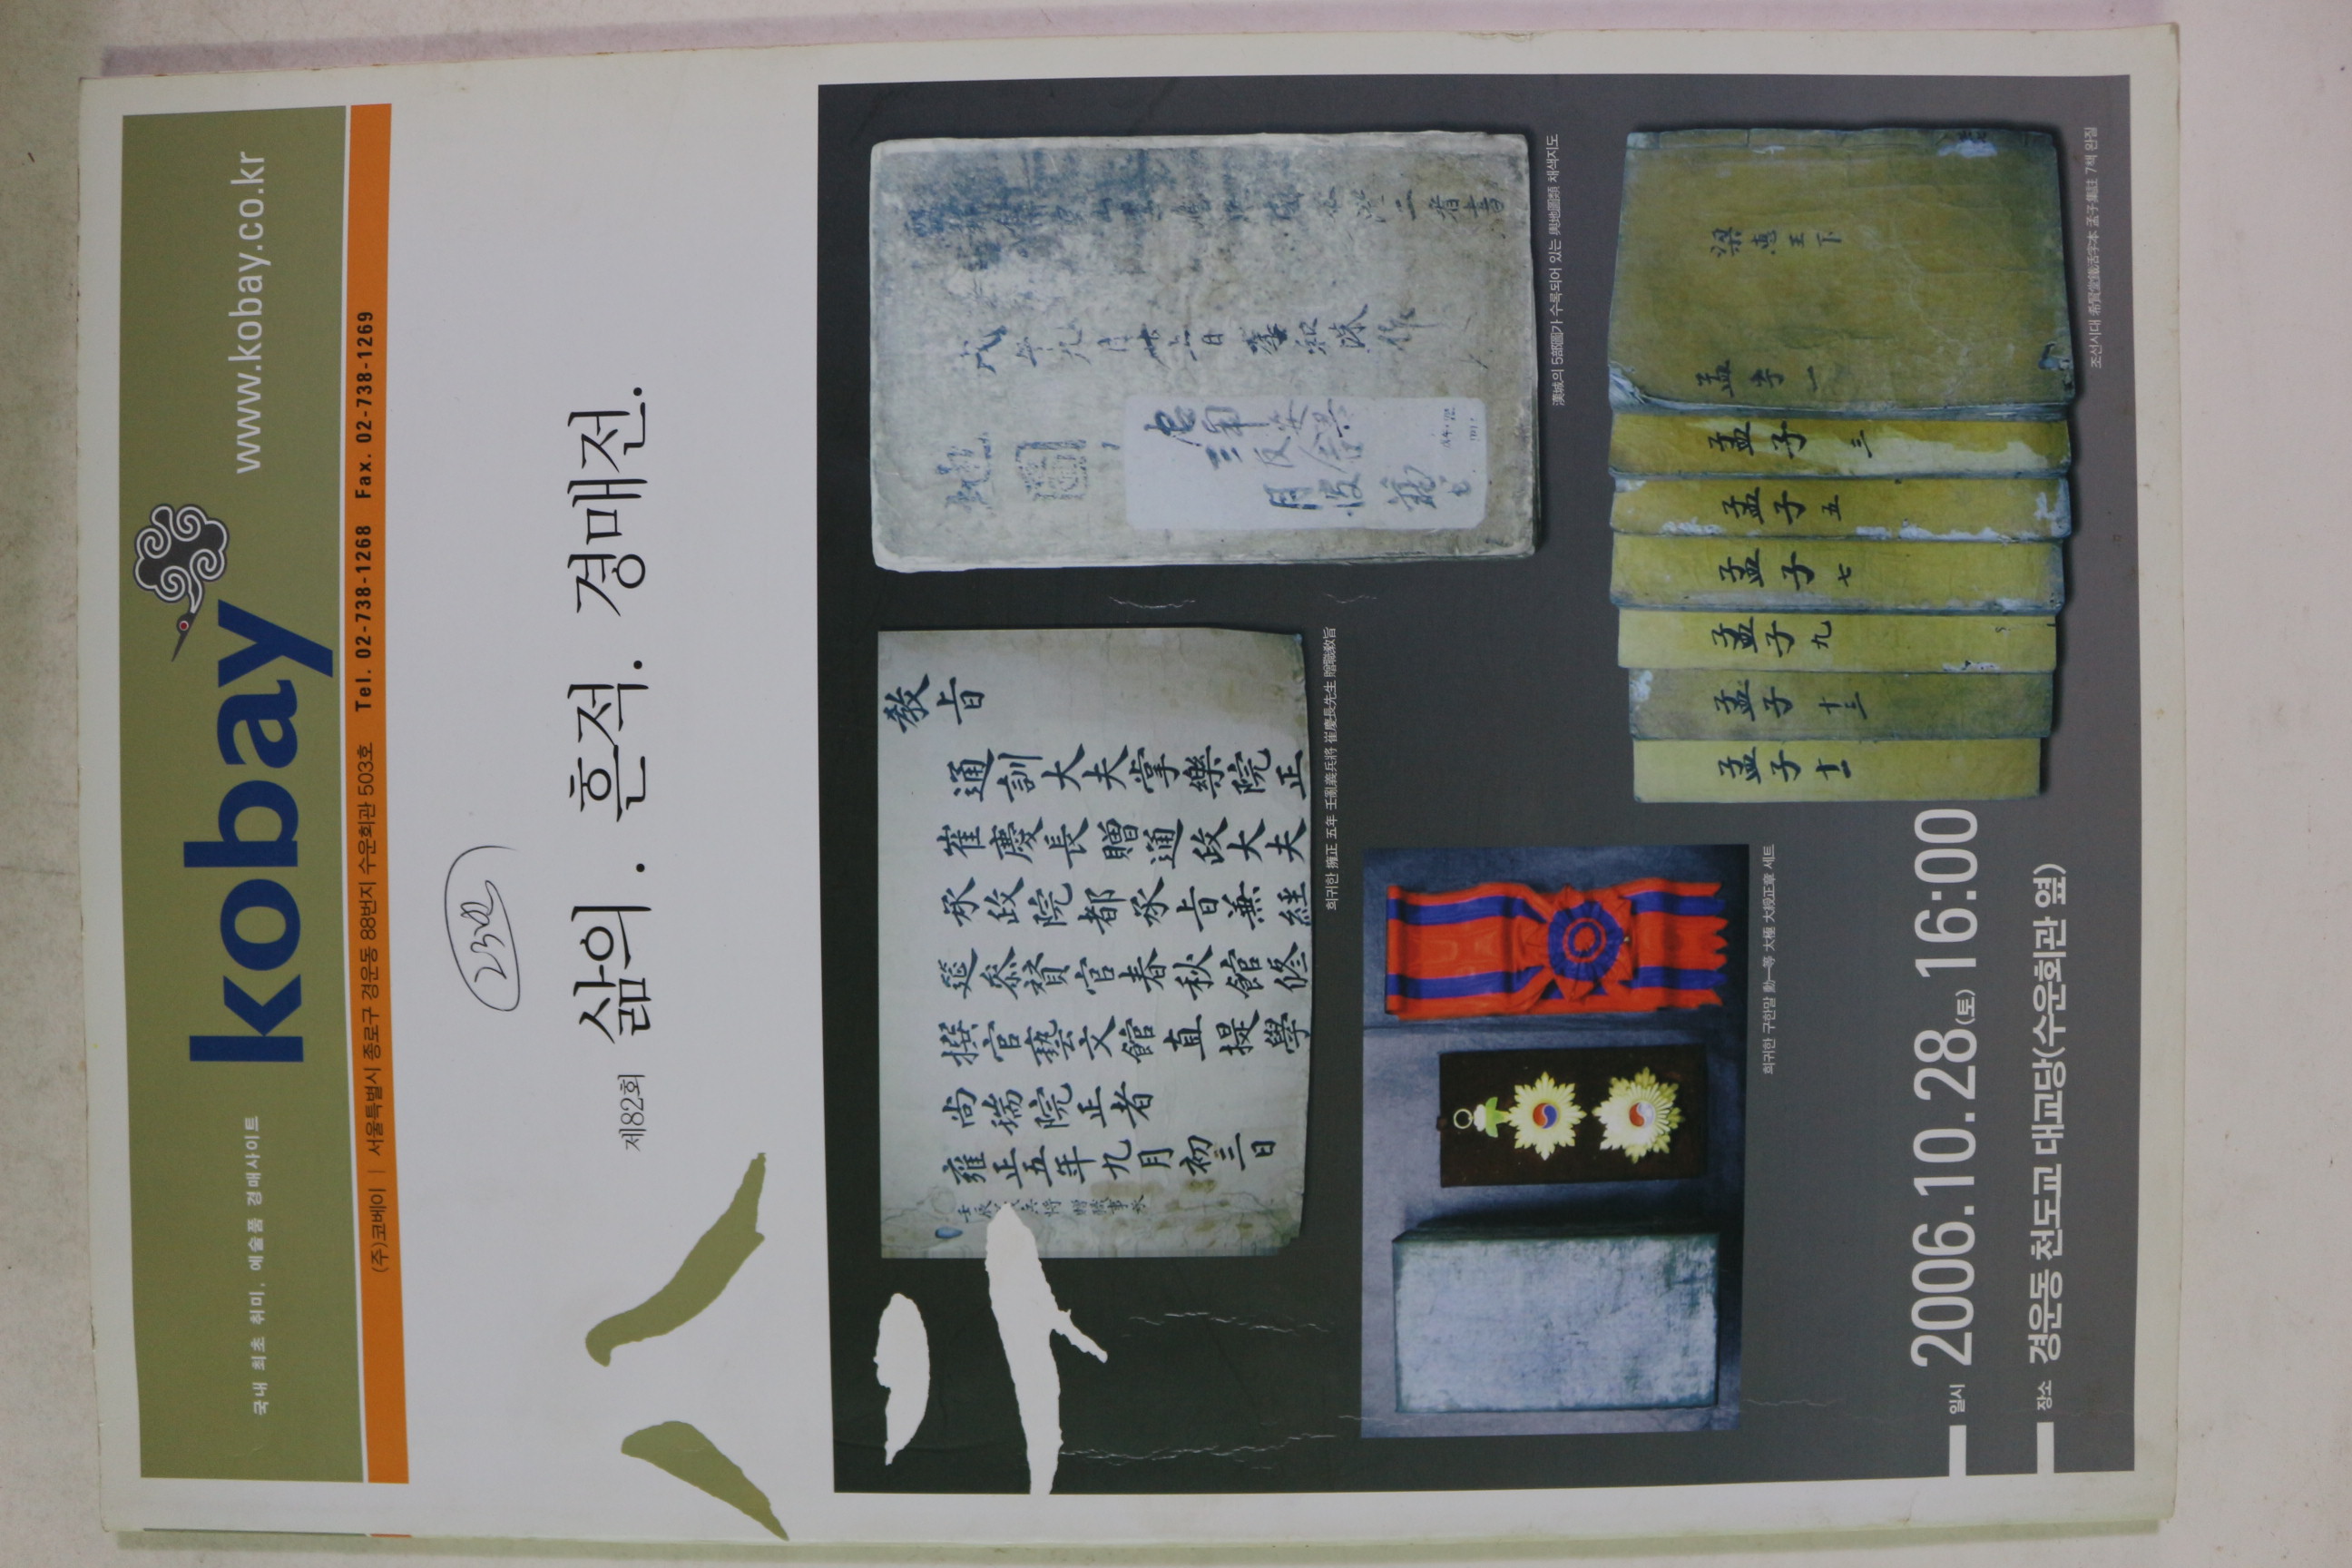 국내 최초 취미, 예술품 경매사이트
kobay
www.kobay.co.kr
(주)코베이 | 서울특별시 종로구 경운동 88번지 수운회관 503호 Tel. 02-738-1268 Fax. 02-738-1269
제82회 삶의 . 흔적 . 경매전 .
教旨
通訓大夫掌樂院正
崔慶長贈通政大夫
承政院都承旨兼經
筵參贊官春秋館修
撰官藝文館直提學
尚瑞院正者
雍正五年九月初三日
희귀한 擁正 五年 壬亂義兵將 崔慶長先生 贈職敎旨
漢城의 5部圖가 수록되어 있는 輿地圖類 채색지도
희귀한 구한말 勳一等 太極 大綬正章 세트
梁惠王下
孟子 一
孟子 三
孟子 五
孟子 七
孟子 九
孟子 十三
孟子 十一
조선시대 希賢堂鐵活字本 孟子集註 7책 완질
일시 2006.10.28(토) 16:00
장소 경운동 천도교 대교당(수운회관 옆)